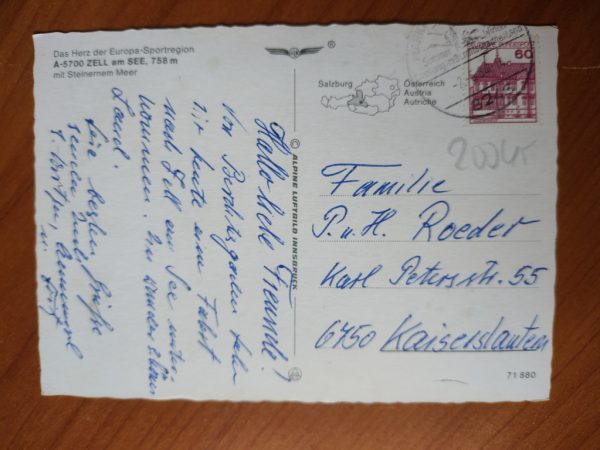 Das Herz der Europa-Sportregion
A-5700 ZELL am SEE, 758 m
mit Steinernem Meer
®
Salzburg
Österreich
Austria
Autriche
60
© ALPINE LUFTBILD INNSBRUCK
Hallo liebe Freunde!
Von Berchtesgaden haben
wir heute eine Fahrt
nach Zell am See unter-
nommen. Ein wunderschönes
Land.
Eure besten Grüße
senden Euch
Familie
P. u. H. Roeder
Karl Petersstr. 55
6750 Kaiserslautern
71 880